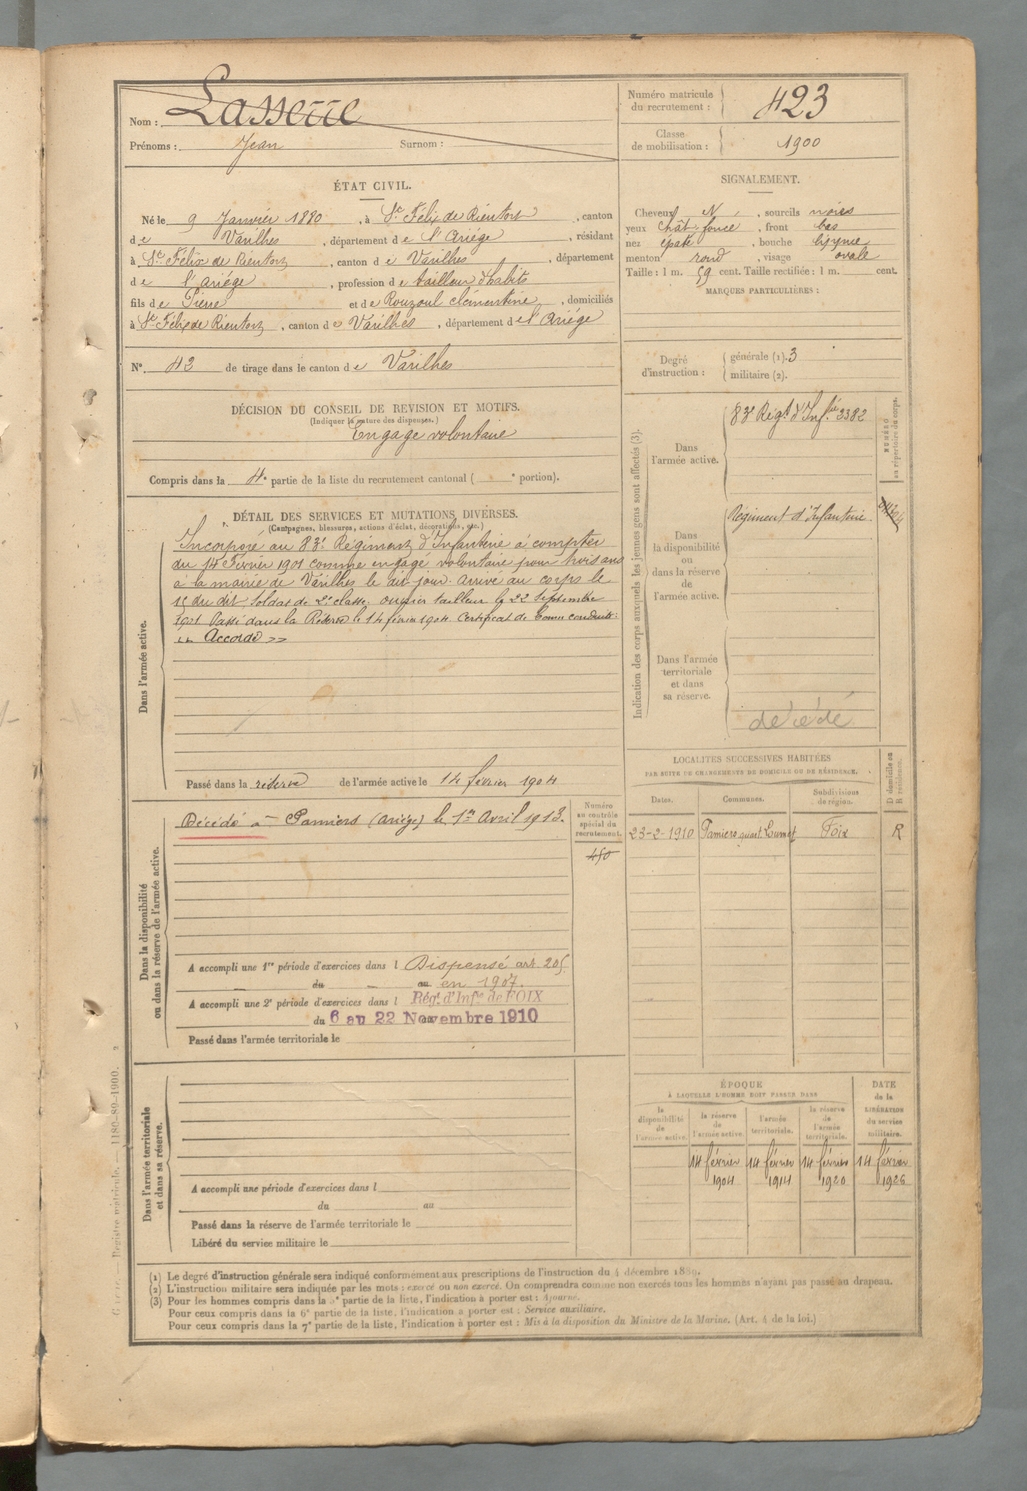 Nom : Lasserre
Prénoms : Jean Surnom :
Numéro matricule du recrutement : 423
Classe de mobilisation : 1900
ÉTAT CIVIL.
Né le 9 Janvier 1880, à St Félix de Rientort, canton
de Varilhes, département de l'Ariége, résidant
à St Félix de Rientort, canton de Varilhes, département
de l'ariége, profession de tailleur d'habits
fils de Pierre et de Rouzoul clémentine, domiciliés
à St Félix de Rientort, canton de Varilhes, département de l'Ariége
N° 42 de tirage dans le canton de Varilhes
SIGNALEMENT.
Cheveux N, sourcils noirs
yeux chât. foncé, front bas
nez épaté, bouche moyenne
menton rond, visage ovale
Taille : 1 m. 59 cent. Taille rectifiée : 1 m. cent.
MARQUES PARTICULIÈRES :
Degré d'instruction : générale (1). 3
militaire (2).
DÉCISION DU CONSEIL DE REVISION ET MOTIFS.
(Indiquer la nature des dispenses.)
Engagé volontaire
Compris dans la 4e partie de la liste du recrutement cantonal ( e portion).
DÉTAIL DES SERVICES ET MUTATIONS DIVERSES.
(Campagnes, blessures, actions d'éclat, décorations, etc.)
Dans l'armée active.
Incorporé au 83e Régiment d'Infanterie à compter
du 14 Février 1901 comme engagé volontaire pour trois ans
à la mairie de Varilhes le dit jour. arrivé au corps le
15 du dit, Soldat de 2e classe. ouvrier tailleur le 22 Septembre
1901 Passé dans la Réserve le 14 février 1904. Certificat de bonne conduite
« Accordé »
Passé dans la réserve de l'armée active le 14 février 1904
Indication des corps auxquels les jeunes gens sont affectés (3).
NUMÉRO au répertoire du corps.
Dans l'armée active.
83e Régt d'Infie 3382
Dans la disponibilité ou dans la réserve de l'armée active.
Régiment d'Infanterie
Dans l'armée territoriale et dans sa réserve.
décédé
Dans la disponibilité ou dans la réserve de l'armée active.
Décédé à Pamiers (Ariège) le 1er Avril 1913.
Numéro au contrôle spécial du recrutement.
450
A accompli une 1re période d'exercices dans l Dispensé art. 205
du au en 1907.
A accompli une 2e période d'exercices dans l Régt d'Infie de FOIX
du 6 au 22 Novembre 1910
Passé dans l'armée territoriale le
LOCALITÉS SUCCESSIVES HABITÉES
PAR SUITE DE CHANGEMENTS DE DOMICILE OU DE RÉSIDENCE.
Dates. Communes. Subdivisions de région. D domicile ou R résidence.
23-2-1910 Pamiers, quart. Foix R
Dans l'armée territoriale et dans sa réserve.
A accompli une période d'exercices dans l
du au
Passé dans la réserve de l'armée territoriale le
Libéré du service militaire le
ÉPOQUE
À LAQUELLE L'HOMME DOIT PASSER DANS
la disponibilité de l'armée active. la réserve de l'armée active. l'armée territoriale. la réserve de l'armée territoriale.
DATE de la LIBÉRATION du service militaire.
14 février 1904 14 février 1914 14 février 1920 14 février 1926
(1) Le degré d'instruction générale sera indiqué conformément aux prescriptions de l'instruction du 4 décembre 1889.
(2) L'instruction militaire sera indiquée par les mots : exercé ou non exercé. On comprendra comme non exercés tous les hommes n'ayant pas passé au drapeau.
(3) Pour les hommes compris dans la 5e partie de la liste, l'indication à porter est : Ajourné.
Pour ceux compris dans la 6e partie de la liste, l'indication à porter est : Service auxiliaire.
Pour ceux compris dans la 7e partie de la liste, l'indication à porter est : Mis à la disposition du Ministre de la Marine. (Art. 4 de la loi.)
Registre matricule. — 1180-89-1900.